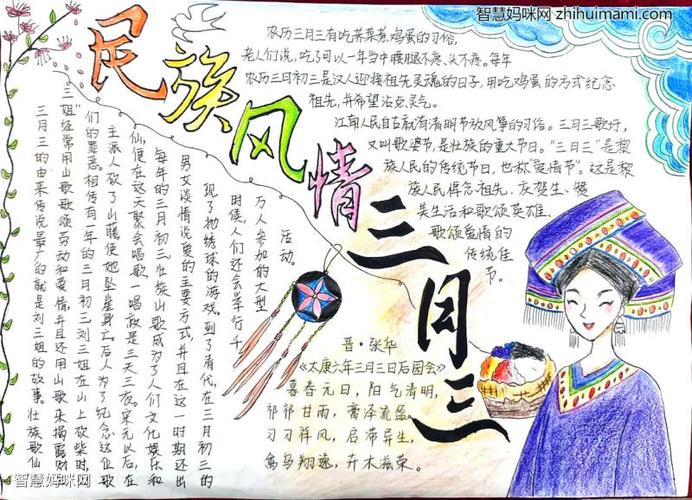 智慧妈咪网 zhihuimami.com
民族风情三月三
农历三月三有吃荠菜煮鸡蛋的习俗,
老人们说,吃了可以一年当中腰腿不疼、头不疼。每年
农历三月初三是汉人迎接祖先灵魂的日子,用吃鸡蛋的方式纪念
祖先,并希望沾点灵气。
江南人民自古就有清明节放风筝的习俗。三月三歌圩,
又叫歌婆节,是壮族的重大节日。“三月三”是黎
族人民的传统节日,也称“爱情节”。这是黎
族人民悼念祖先、庆贺生、赞
美生活和歌颂英雄、
歌颂爱情的
传统佳
节。
三月三的由来传说最广的就是刘三姐的故事。壮族歌仙
三姐”经常用山歌歌颂劳动和爱情,并且还用山歌来揭露财
们的罪恶。相传有一年的三月初三刘三姐在山上砍柴时,
主派人砍了山藤使她坠崖身亡。后人为了纪念这位歌
仙,便在这天聚会唱歌,一唱就是三天三夜。宋元以后,在
每年的三月初三壮族山歌成为了人们文化娱乐和
男女谈情说爱的主要方式,并且在这一时期还出
现了抛绣球的游戏。到了清代,在三月初三的
时候,人们还会举行千
万人参加的大型
活动。
晋·张华
《太康六年三月三日后园会》
暮春元日,阳气清明,
祁祁甘雨,膏泽流盈。
习习祥风,启滞异生,
禽鸟翔逸,卉木滋荣。
智慧妈咪网